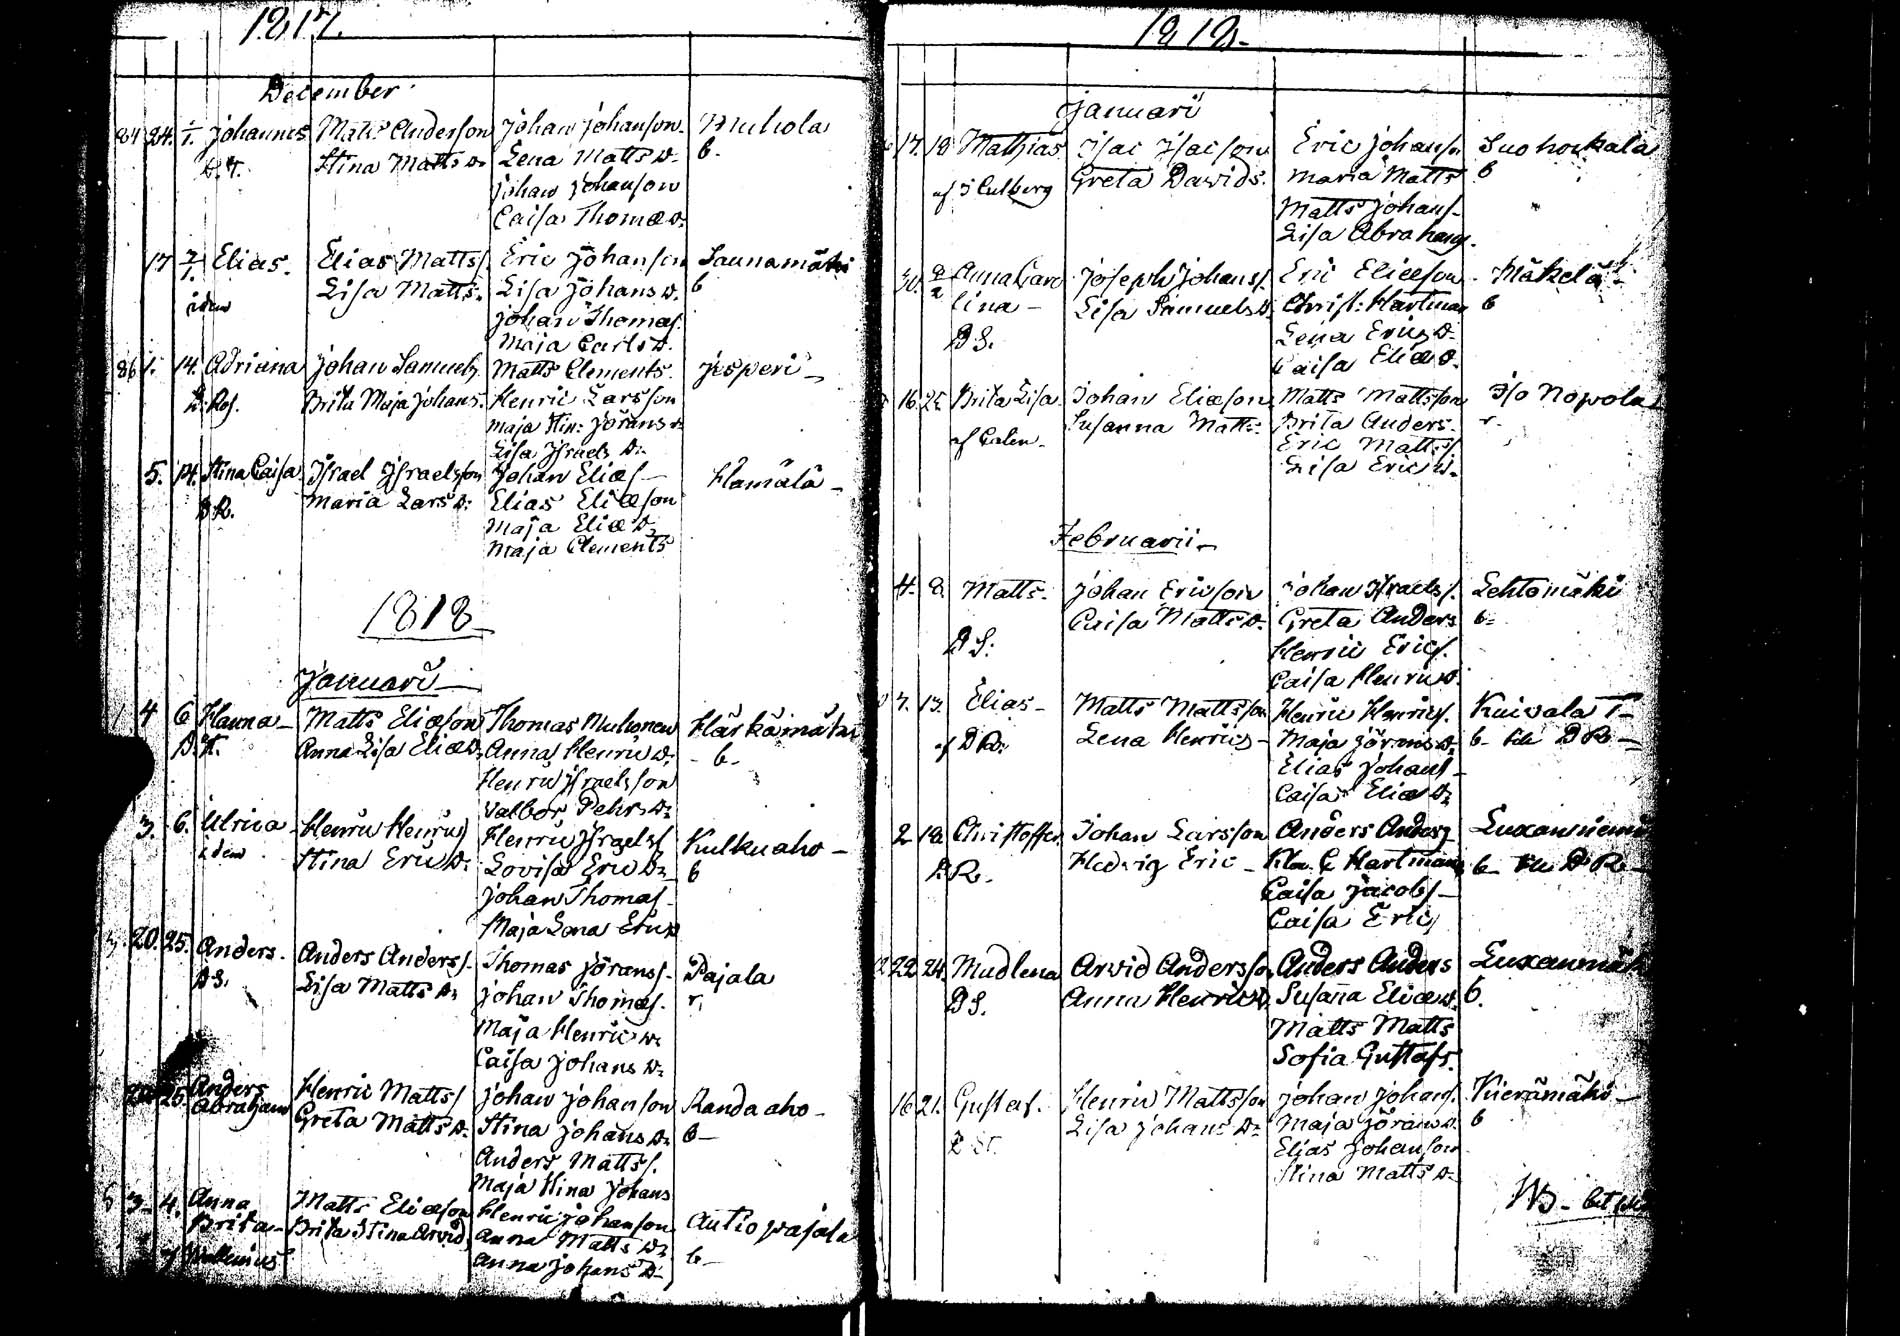 1817.
December
84 24. 1/1. Johannes Matts Anderson Johan Johanson. Muhola
Stina Matts D. Lena Matts D. b.
Johan Johanson
Caisa Thomæ D.
17 2/1. Elias. Elias Mattss. Eric Johanson Saunamäki
idem Lisa Matts. Lisa Johans D. b
Johan Thomas.
Maja Carls D.
86 1. 14. Adriana Johan Samuels. Matts Clements. Jesperi
D. Ros. Brita Maja Johans. Henric Larsson
Maja Stin: Jörans D.
Lisa Israels D.
5. 14. Stina Caisa Israel Israelsson Johan Elias. Hamälä
D R. Maria Lars D: Elias Eliæson
Maja Eliæ D.
Maja Clements
1818
Januari
1 4 6 Hanna Matts Eliæson Thomas Muhonen Härkämäki
D. H. Anna Lisa Eliæ D. Anna Henric D. b.
Henric Israelsson
Valbor Pehrs D.
3. 6. Ulrica Henric Henrics Henric Israels. Kulkuaho
idem Stina Eric D. Lovisa Eric D. b
Johan Thomas.
Maja Lena Eric D
3. 20. 25. Anders. Anders Anderss. Thomas Jörans. Pajala
D S. Lisa Matts D. Johan Thomas. r.
Maja Henric D.
Caisa Johans D.
25. Anders Henric Matts. Johan Johanson Randa aho
Abraham Greta Matts D. Stina Johans D. b
Anders Matts.
Maja Stina Johans
5 3. 4. Anna Matts Eliæson Henric Johanson Autio pajala
Brita Brita Stina Arvid. Anna Matts D. b
af Wallenius Anna Johans D.
1818.
Januari
17. 18 Mathias Isac Isacson Eric Johans. Suohonkala
Greta Davids. Maria Matts b
Matts Johans.
Lisa Abrahams.
30. 2/2 Anna Caro Joseph Johans. Eric Eliæson Mäkelä
lina Lisa Samuels D. Christ: Hartman b
D S. Lena Erics D.
Caisa Eliæ D.
16 25 Brita Lisa. Johan Eliæson Matts Mattsson Iso Nopola
af Calen. Susanna Matts. Brita Anders. r.
Eric Matts.
Lisa Eric D.
Februarii
4. 8. Matts. Johan Ericson Johan Israels. Lehtomäki
Caisa Matts D. Greta Anders b
D S: Henric Erics.
Caisa Henric D.
7. 13. Elias Matts Mattsson Henric Henrics. Kuivala T
af D R: Lena Henrics Maja Jörans D. b till D R
Elias Johans.
Caisa Eliæ D.
2 18 Christoffer. Johan Larsson Anders Anders.
D R. Hedvig Eric Hartman b till D R
Caisa Jacobs.
Caisa Eric
12 22 24. Madlena Arvid Andersson Anders Anders
D S. Anna Henric D. Susanna Eliæ D. b.
Matts Matts
Sofia Gustafs.
16 21. Gustaf. Henric Mattsson Johan Johans. Kierämäki
Lisa Johans D. Maja Jörans D. b
Elias Johanson
Stina Matts D.